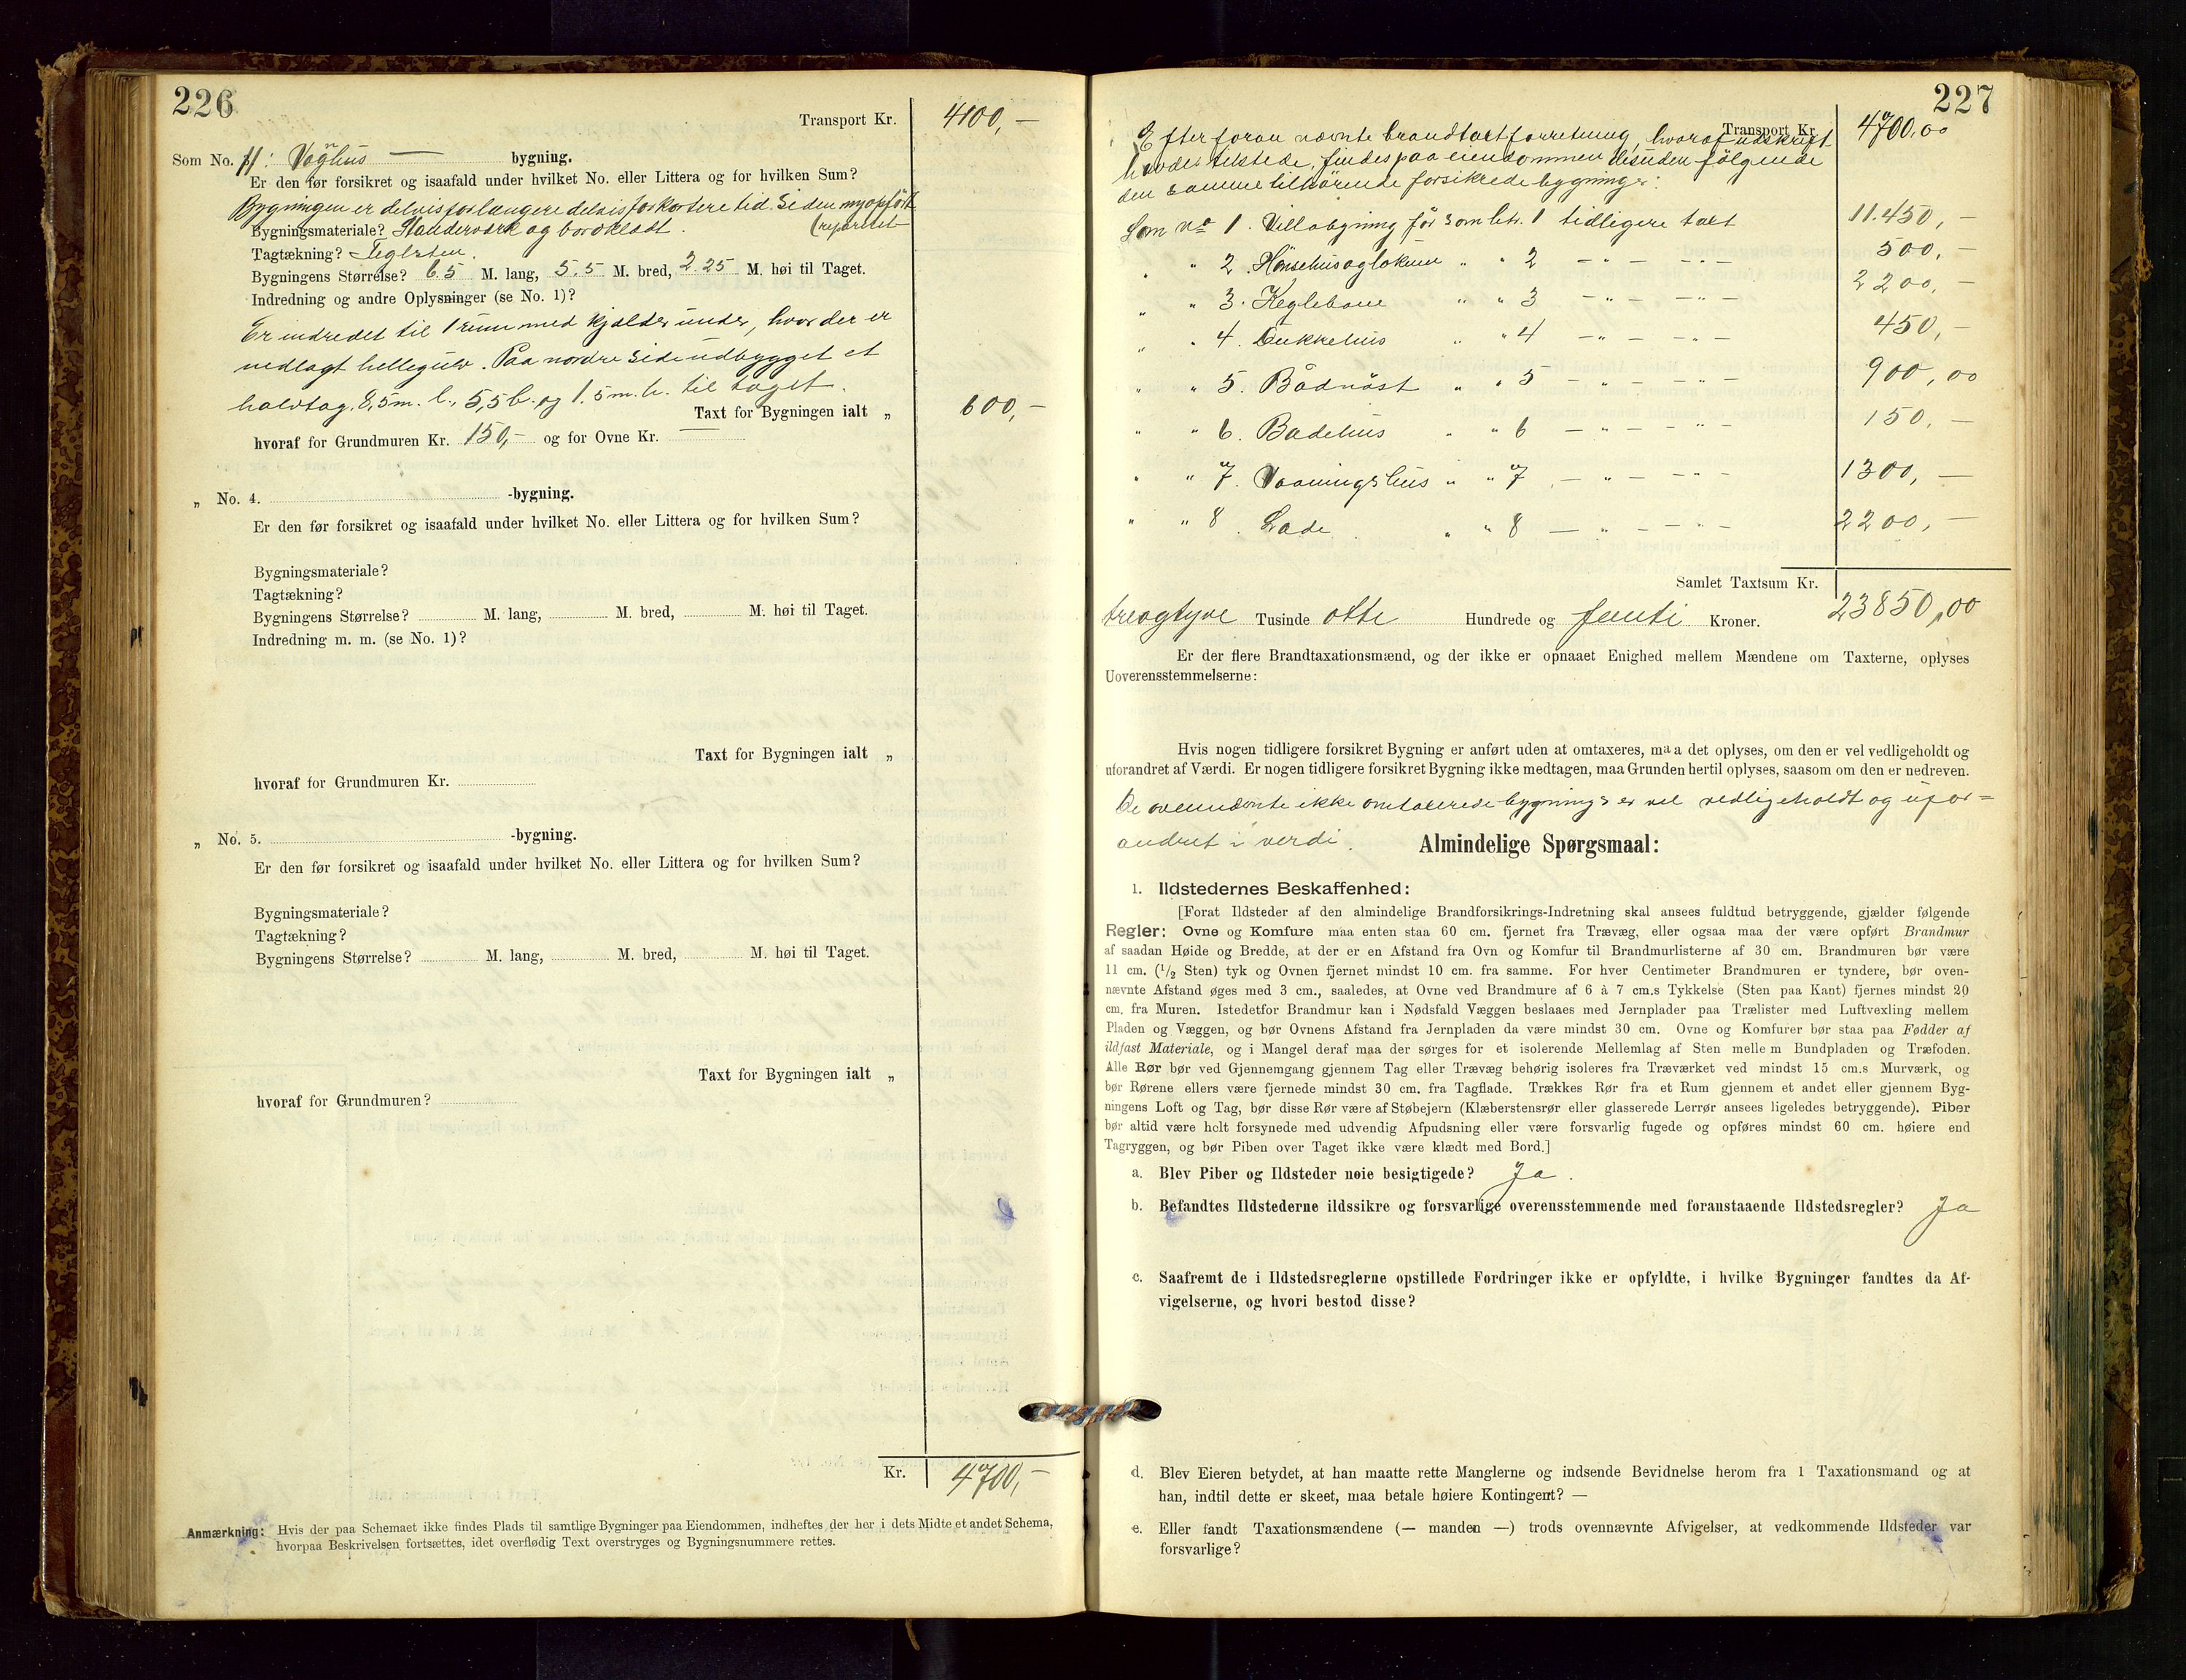 226
Transport Kr. 4100,—
Som No. 11: Vognhus — bygning.
Er den før forsikret og isaafald under hvilket No. eller Littera og for hvilken Sum?
Bygningen er delvis for længere delvis for kortere tid siden nyopført
(repareret
Bygningsmateriale? Standerværk og bordklædt.
Tagtækning? Teglsten.
Bygningens Størrelse? 6.5 M. lang, 5.5 M. bred, 2.25 M. høi til Taget.
Indredning og andre Oplysninger (se No. 1)?
Er indredet til 1 rum med kjælder under, hvor der er
nedlagt hellegulv. Paa nordre side udbygget et
halvtag, 8,5 m. l., 5,5 b. og 1.5 m. h. til taget.
Taxt for Bygningen ialt „ 600,—
hvoraf for Grundmuren Kr. 150,— og for Ovne Kr. —
„ No. 4. -bygning.
Er den før forsikret og isaafald under hvilket No. eller Littera og for hvilken Sum?
Bygningsmateriale?
Tagtækning?
Bygningens Størrelse? M. lang, M. bred, M. høi til Taget.
Indredning m. m. (se No. 1)?
Taxt for Bygningen ialt „
hvoraf for Grundmuren Kr.
„ No. 5. -bygning.
Er den før forsikret og isaafald under hvilket No. eller Littera og for hvilken Sum?
Bygningsmateriale?
Tagtækning?
Bygningens Størrelse? M. lang, M. bred, M. høi til Taget.
Taxt for Bygningen ialt „
hvoraf for Grundmuren?
Kr. 4700,—
Anmærkning: Hvis der paa Schemaet ikke findes Plads til samtlige Bygninger paa Eiendommen, indheftes der her i dets Midte et andet Schema,
hvorpaa Beskrivelsen fortsættes, idet overflødig Text overstryges og Bygningsnummere rettes.
227
Transport Kr. 4700,00
Efter foran nævnte brandtaxtforretning, hvoraf udskrift
havdes tilstede, findes paa eiendommen desuden følgende
den samme tilhørende forsikrede bygninger:
Som No 1. Villabygning før som litr. 1 tidligere taxt 11.450,—
„ „ 2. Hönsehus og lokum „ „ 2 — „ — — „ — 500,—
„ „ 3. Keglebane „ „ 3 — „ — — „ — 2200,—
„ „ 4. Dukkehus „ „ 4 — „ — — „ — 450,—
„ „ 5. Bådnöst „ „ 5 — „ — — „ — 900,00
„ „ 6. Badehus „ „ 6 — „ — — „ — 150,—
„ „ 7. Vaaningshus „ „ 7 — „ — — „ — 1300,—
„ „ 8. Lade „ „ 8 — „ — — „ — 2200,—
Samlet Taxtsum Kr. 23850,00
treogtyve Tusinde otte Hundrede og femti Kroner.
Er der flere Brandtaxationsmænd, og der ikke er opnaaet Enighed mellem Mændene om Taxterne, oplyses
Uoverensstemmelserne:
Hvis nogen tidligere forsikret Bygning er anført uden at omtaxeres, maa det oplyses, om den er vel vedligeholdt og
uforandret af Værdi. Er nogen tidligere forsikret Bygning ikke medtagen, maa Grunden hertil oplyses, saasom om den er nedreven.
De ovennævnte ikke omtaxerede bygninger er vel vedligeholdt og ufor=
andret i verdi.
Almindelige Spørgsmaal:
1. Ildstedernes Beskaffenhed:
[Forat Ildsteder af den almindelige Brandforsikrings-Indretning skal ansees fuldtud betryggende, gjælder følgende
Regler: Ovne og Komfure maa enten staa 60 cm. fjernet fra Trævæg, eller ogsaa maa der være opført Brandmur
af saadan Høide og Bredde, at der er en Afstand fra Ovn og Komfur til Brandmurlisterne af 30 cm. Brandmuren bør være
11 cm. (1/2 Sten) tyk og Ovnen fjernet mindst 10 cm. fra samme. For hver Centimeter Brandmuren er tyndere, bør oven-
nævnte Afstand øges med 3 cm., saaledes, at Ovne ved Brandmure af 6 à 7 cm.s Tykkelse (Sten paa Kant) fjernes mindst 20
cm. fra Muren. Istedetfor Brandmur kan i Nødsfald Væggen beslaaes med Jernplader paa Trælister med Luftvexling mellem
Pladen og Væggen, og bør Ovnens Afstand fra Jernpladen da være mindst 30 cm. Ovne og Komfurer bør staa paa Fødder af
ildfast Materiale, og i Mangel deraf maa der sørges for et isolerende Mellemlag af Sten mellem Bundpladen og Træfoden.
Alle Rør bør ved Gjennemgang gjennem Tag eller Trævæg behørig isoleres fra Træværket ved mindst 15 cm.s Murværk, og
bør Rørene ellers være fjernede mindst 30 cm. fra Tagflade. Trækkes Rør fra et Rum gjennem et andet eller gjennem Byg-
ningens Loft og Tag, bør disse Rør være af Støbejern (Klæberstensrør eller glasserede Lerrør ansees ligeledes betryggende). Piber
bør altid være helt forsynede med udvendig Afpudsning eller være forsvarlig fugede og opføres mindst 60 cm. høiere end
Tagryggen, og bør Piben over Taget ikke være klædt med Bord.]
a. Blev Piber og Ildsteder nøie besigtigede? Ja.
b. Befandtes Ildstederne ildssikre og forsvarlige overensstemmende med foranstaaende Ildstedsregler? Ja
c. Saafremt de i Ildstedsreglerne opstillede Fordringer ikke er opfyldte, i hvilke Bygninger fandtes da Af-
vigelserne, og hvori bestod disse?
d. Blev Eieren betydet, at han maatte rette Manglerne og indsende Bevidnelse herom fra 1 Taxationsmand og at
han, indtil dette er skeet, maa betale høiere Kontingent? —
e. Eller fandt Taxationsmændene (— manden —) trods ovennævnte Afvigelser, at vedkommende Ildsteder var
forsvarlige?